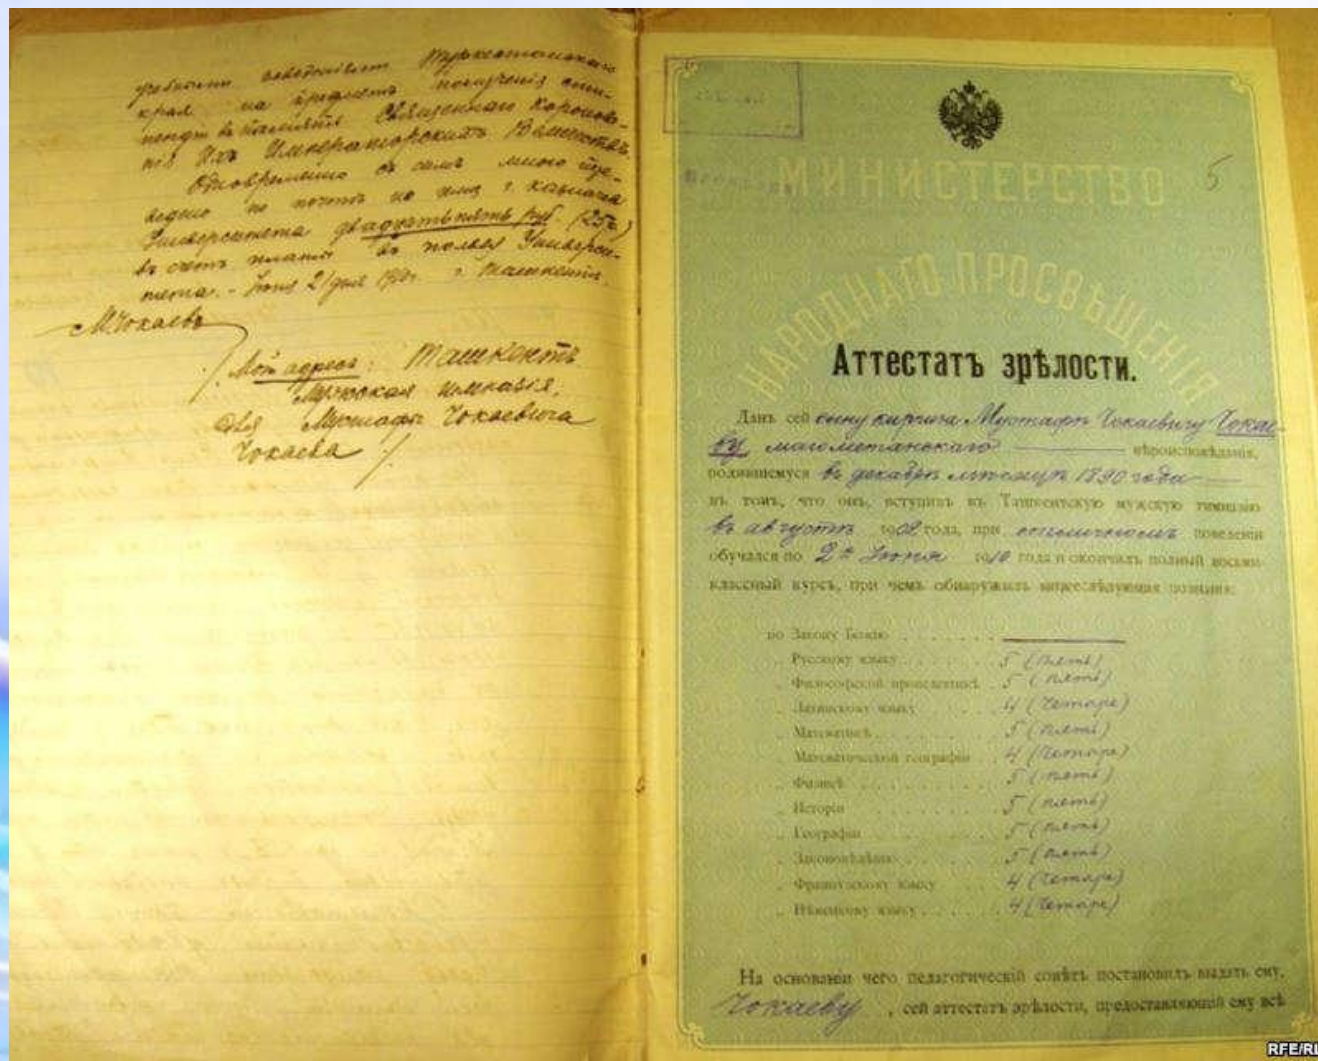 учебными заведениями Туркестанскаго
края на предметъ полученія стипендіи
въ память Священнаго Короно-
Ихъ Императорскихъ Величествъ.
Одновременно съ симъ мною пере-
ведено по почтѣ на имя г. казначея
Университета двадцать пять руб. (25 р)
въ счетъ платы въ пользу Универси-
тета. - Іюня 2/дня 1910 г. г. Ташкентъ.
М.Чокаевъ
/. Мой адресъ: Ташкентъ
Мужская гимназія,
для Мустафы Чокаевича
Чокаева /.
5
МИНИСТЕРСТВО
НАРОДНАГО ПРОСВѢЩЕНІЯ
Аттестатъ зрѣлости.
Данъ сей сыну киргиза Мустафѣ Чокаевичу Чокае-
ву, магометанскаго вѣроисповѣданія,
родившемуся въ декабрѣ мѣсяцѣ 1890 года
въ томъ, что онъ, вступивъ въ Ташкентскую мужскую гимназію
въ августѣ 1902 года, при отличномъ поведеніи
обучался по 2е Іюня 1910 года и окончилъ полный восьми-
классный курсъ, при чемъ обнаружилъ нижеслѣдующія познанія:
по Закону Божію
„ Русскому языку 5 (пять)
„ Философской пропедевтикѣ 5 (пять)
„ Латинскому языку 4 (четыре)
„ Математикѣ 5 (пять)
„ Математической географіи 4 (четыре)
„ Физикѣ 5 (пять)
„ Исторіи 5 (пять)
„ Географіи 5 (пять)
„ Законовѣдѣнію 5 (пять)
„ Французскому языку 4 (четыре)
„ Нѣмецкому языку 4 (четыре)
На основаніи чего педагогическій совѣтъ постановилъ выдать ему,
Чокаеву, сей аттестатъ зрѣлости, предоставляющій ему всѣ
RFE/RL